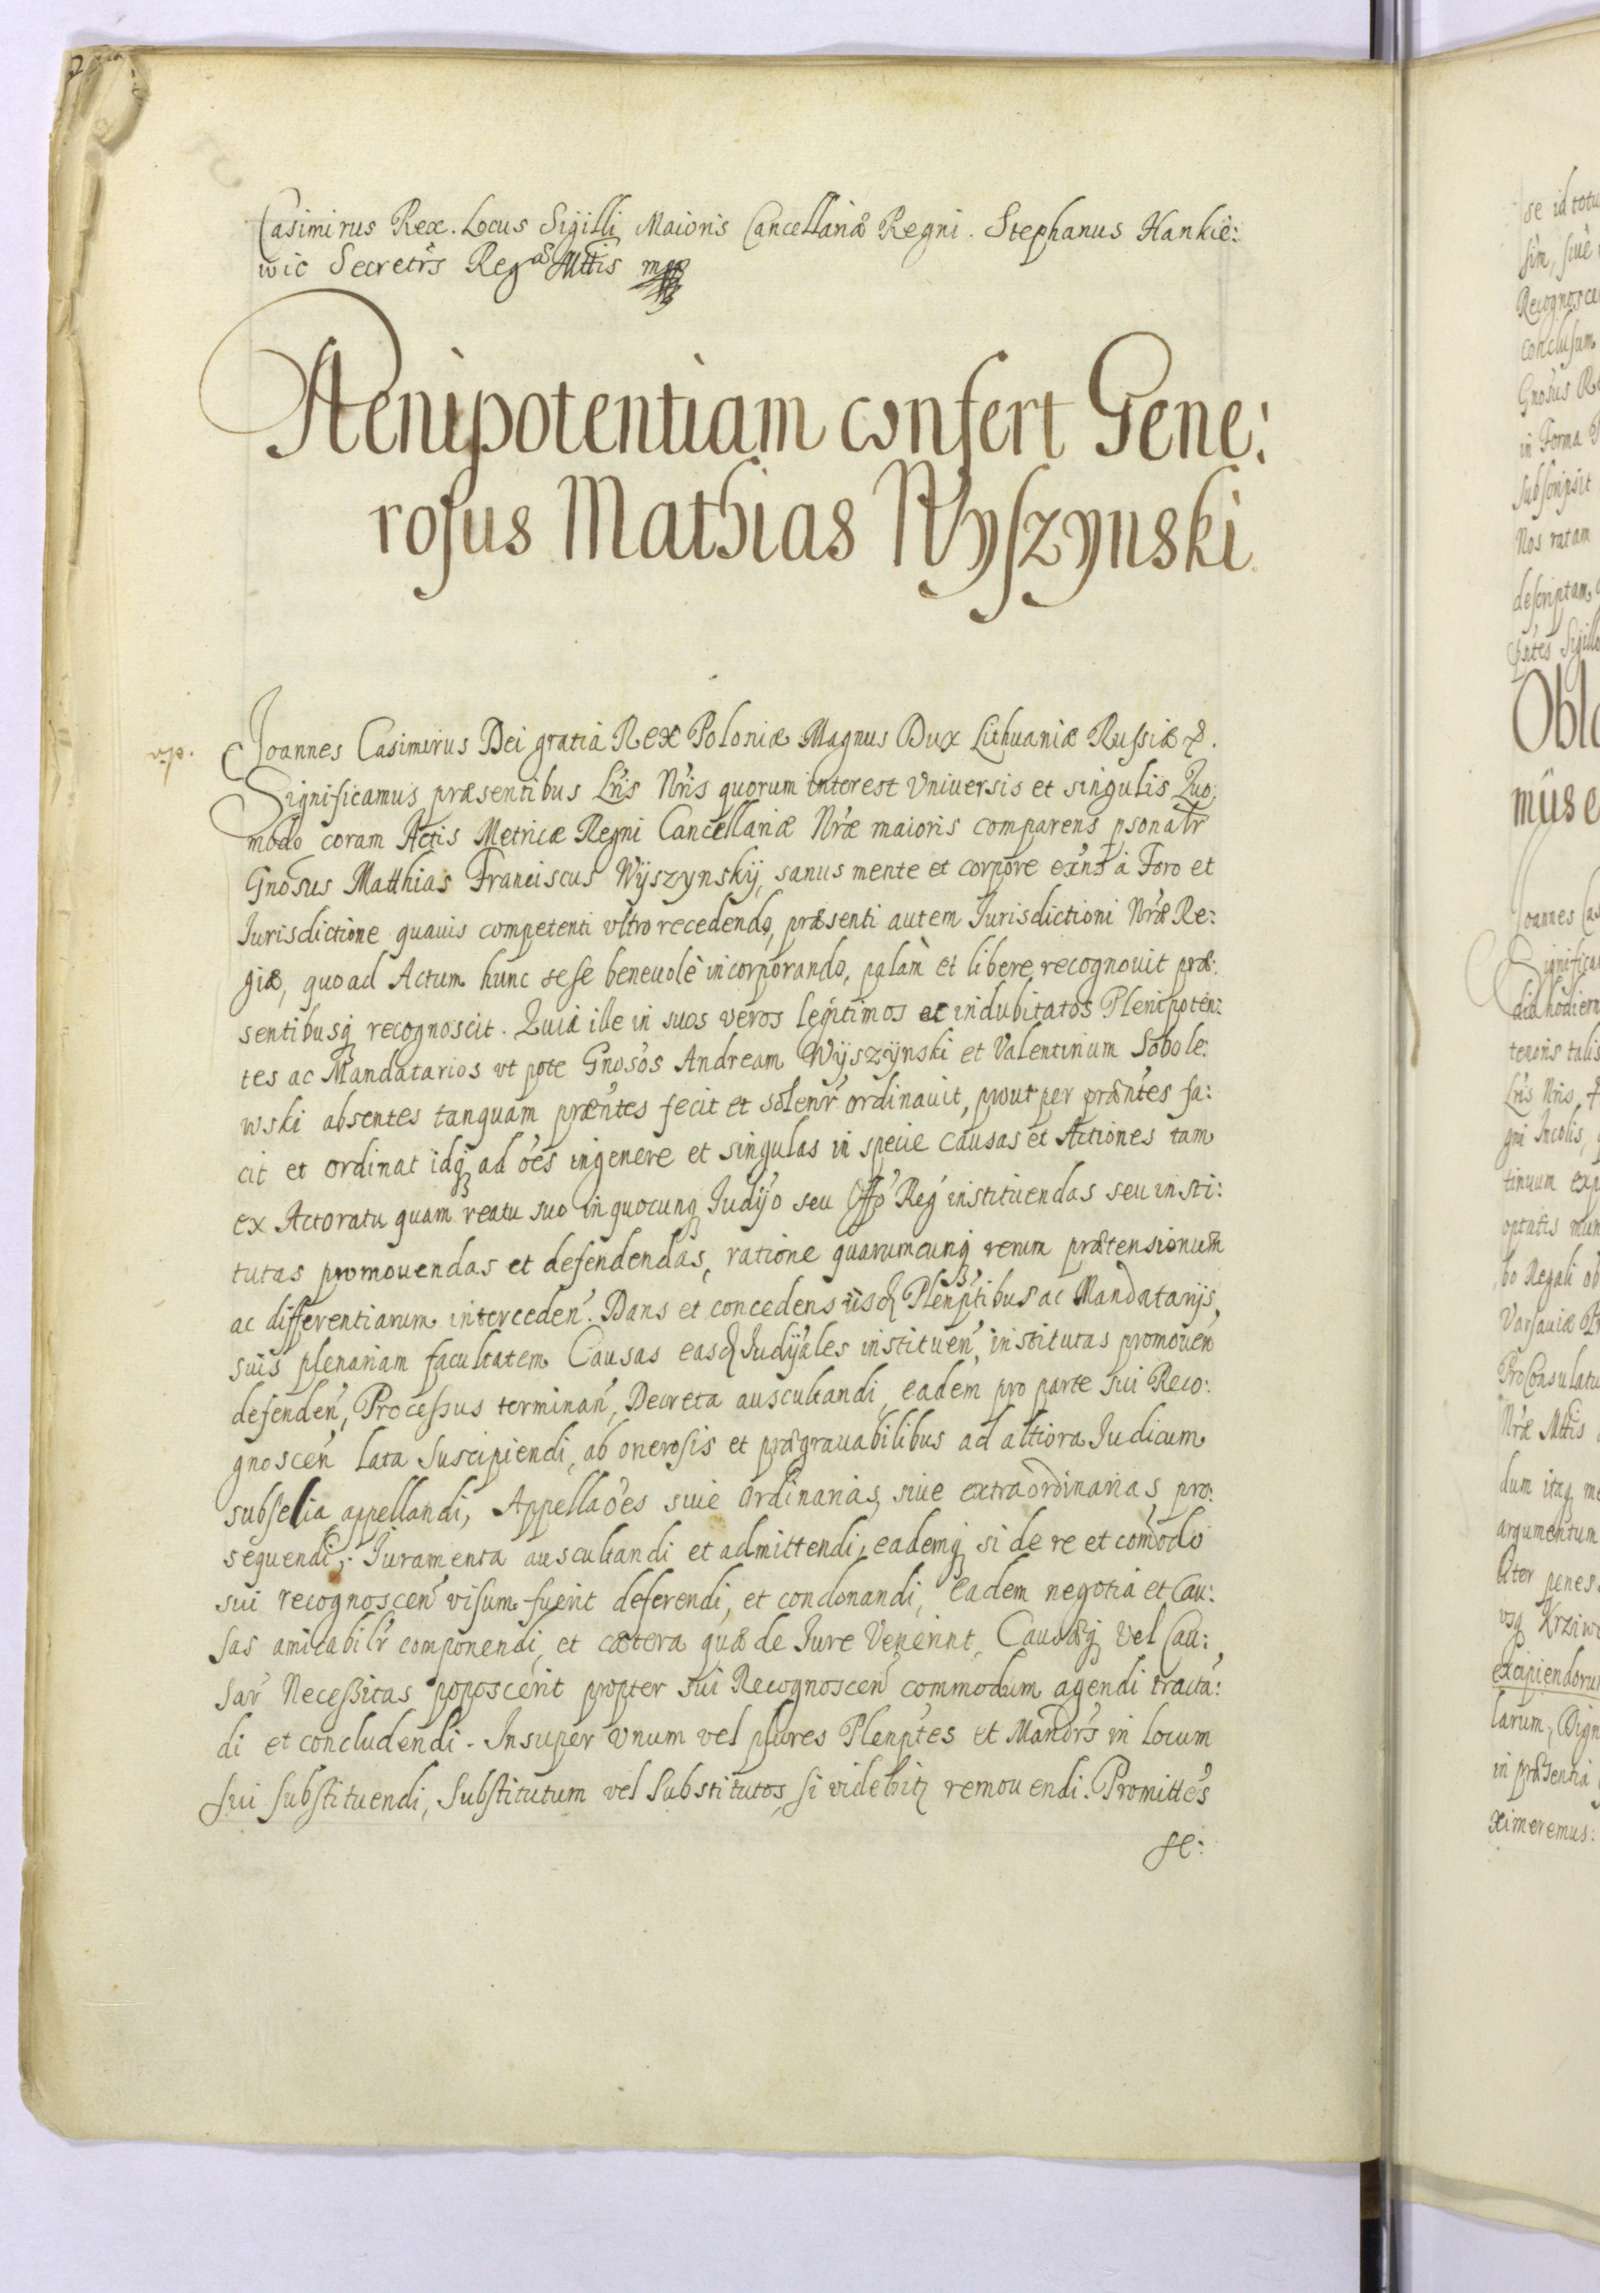 Casimirus Rex. Locus Sigilli Maioris Cancellariæ Regni. Stephanus Hankie:
wic Secretr̃s Regæ Mttis mpp
Plenipotentiam confert Gene:
rosus Mathias Wyszynski
Joannes Casimirus Dei gratia Rex Poloniæ Magnus Dux Lithuaniæ Russiæ &.
Significamus præsentibus Lr̃is Nr̃is quorum interest Vniuersis et singulis Quo:
modo coram Actis Metricæ Regni Cancellariæ Nr̃æ maioris comparens psonalr̃
Gnosus Matthias Franciscus Wÿszynskÿ, sanus mente et corpore exñs à Foro et
Jurisdictione quauis competenti vltro recedendo, præsenti autem Jurisdictioni Nr̃æ Re:
giæ, quoad Actum hunc sese beneuolè incorporando, palàm et libere recognouit præ:
sentibusq̃ recognoscit. Quia ille in suos veros legitimos et indubitatos Plenipoten:
tes ac Mandatarios vt pote Gnosos Andream Wÿszÿnski et Valentinum Sobole:
wski absentes tanquam præñtes fecit et solenr̃ ordinauit, prout per præñtes fa:
cit et ordinat idq̃ ad oẽs ingenere et singulas in specie causas et Actiones tam
ex Actoratu quam reatu suo in quocunq̃ Judÿo seu Offo Reg̃ instituendas seu insti:
tutas promouendas et defendendas, ratione quarumcunq̃ rerum prætensionum
ac differentiarum interceden̄. Dans et concedens iisd̃ Plenptibus ac Mandatarijs
suis plenariam facultatem Causas easd̃ Judÿales instituen̄, institutas promouen̄
defenden̄, Processus terminan̄, Decreta auscultandi, eadem pro parte sui Reco:
gnoscen̄ lata suscipiendi, ab onerosis et prægrauabilibus ad altiora Judicum
subselia appellandi, Appellaões siue ordinarias, siue extraordinarias pro:
sequendi, Juramenta auscultandi et admittendi, eademq̃ si de re et comodo
sui recognoscen̄ visum fuerit deferendi, et condonandi, eadem negotia et Cau:
sas amicabilr̃ componendi, et cætera quæ de Jure Venerint, Causæq̃ vel Cau:
sar̃ Necessitas poposcerit propter sui Recognoscen̄ commodum agendi tracta:
di et concludendi. Insuper vnum vel plures Plenptes et Mandr̃s in locum
sui substituendi, Substitutum vel Substitutos, si videbitz remouendi. Promittẽs
se:
se id totu
sim, siue
Recognosce
conclusum
Gnosus Re
in Forma
subscripsit
Nos ratam
descriptam
Sigillo
Obla
müse
Joannes Cas
Significa
die hodiern
tenoris talis
Lr̃is Nr̃is
gni Incolis,
tinuum exp
optatis mun
bo Regali ob
Varsauiæ
ProConsulatu
Nr̃æ Mttis
dum itaq̃ me
argumentum
liter penes
vsq̃ Krziwo
excipiendoru
larum, Dign
in præsentia
ximeremus: